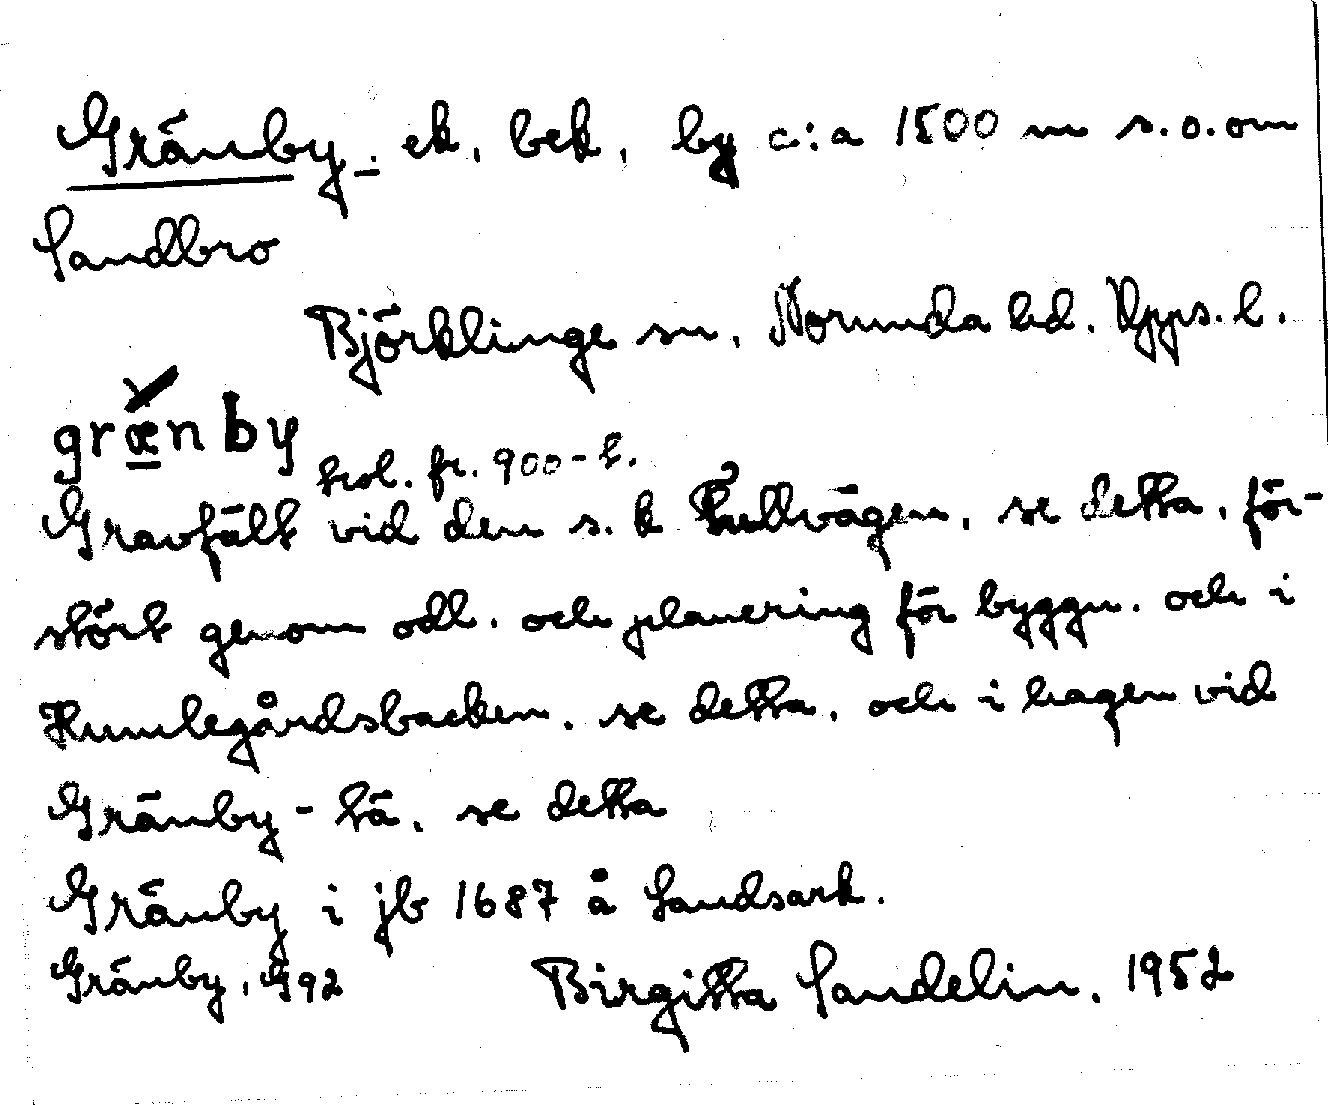 Gränby, ek, bek, by c:a 1500 m s.o. om
Sandbro
Björklinge sn, Norunda hd. Upps. l.
græ̀nby
trol. fr. 900-t.
Gravfält vid den s. k Tullvägen, se detta, för-
stört genom odl. och planering för byggn. och i
Humlegårdsbacken, se detta, och i hagen vid
Gränby-tä, se detta
Gränby i jb 1687 å Landsark.
Gränby, G92 Birgitta Sandelin, 1952